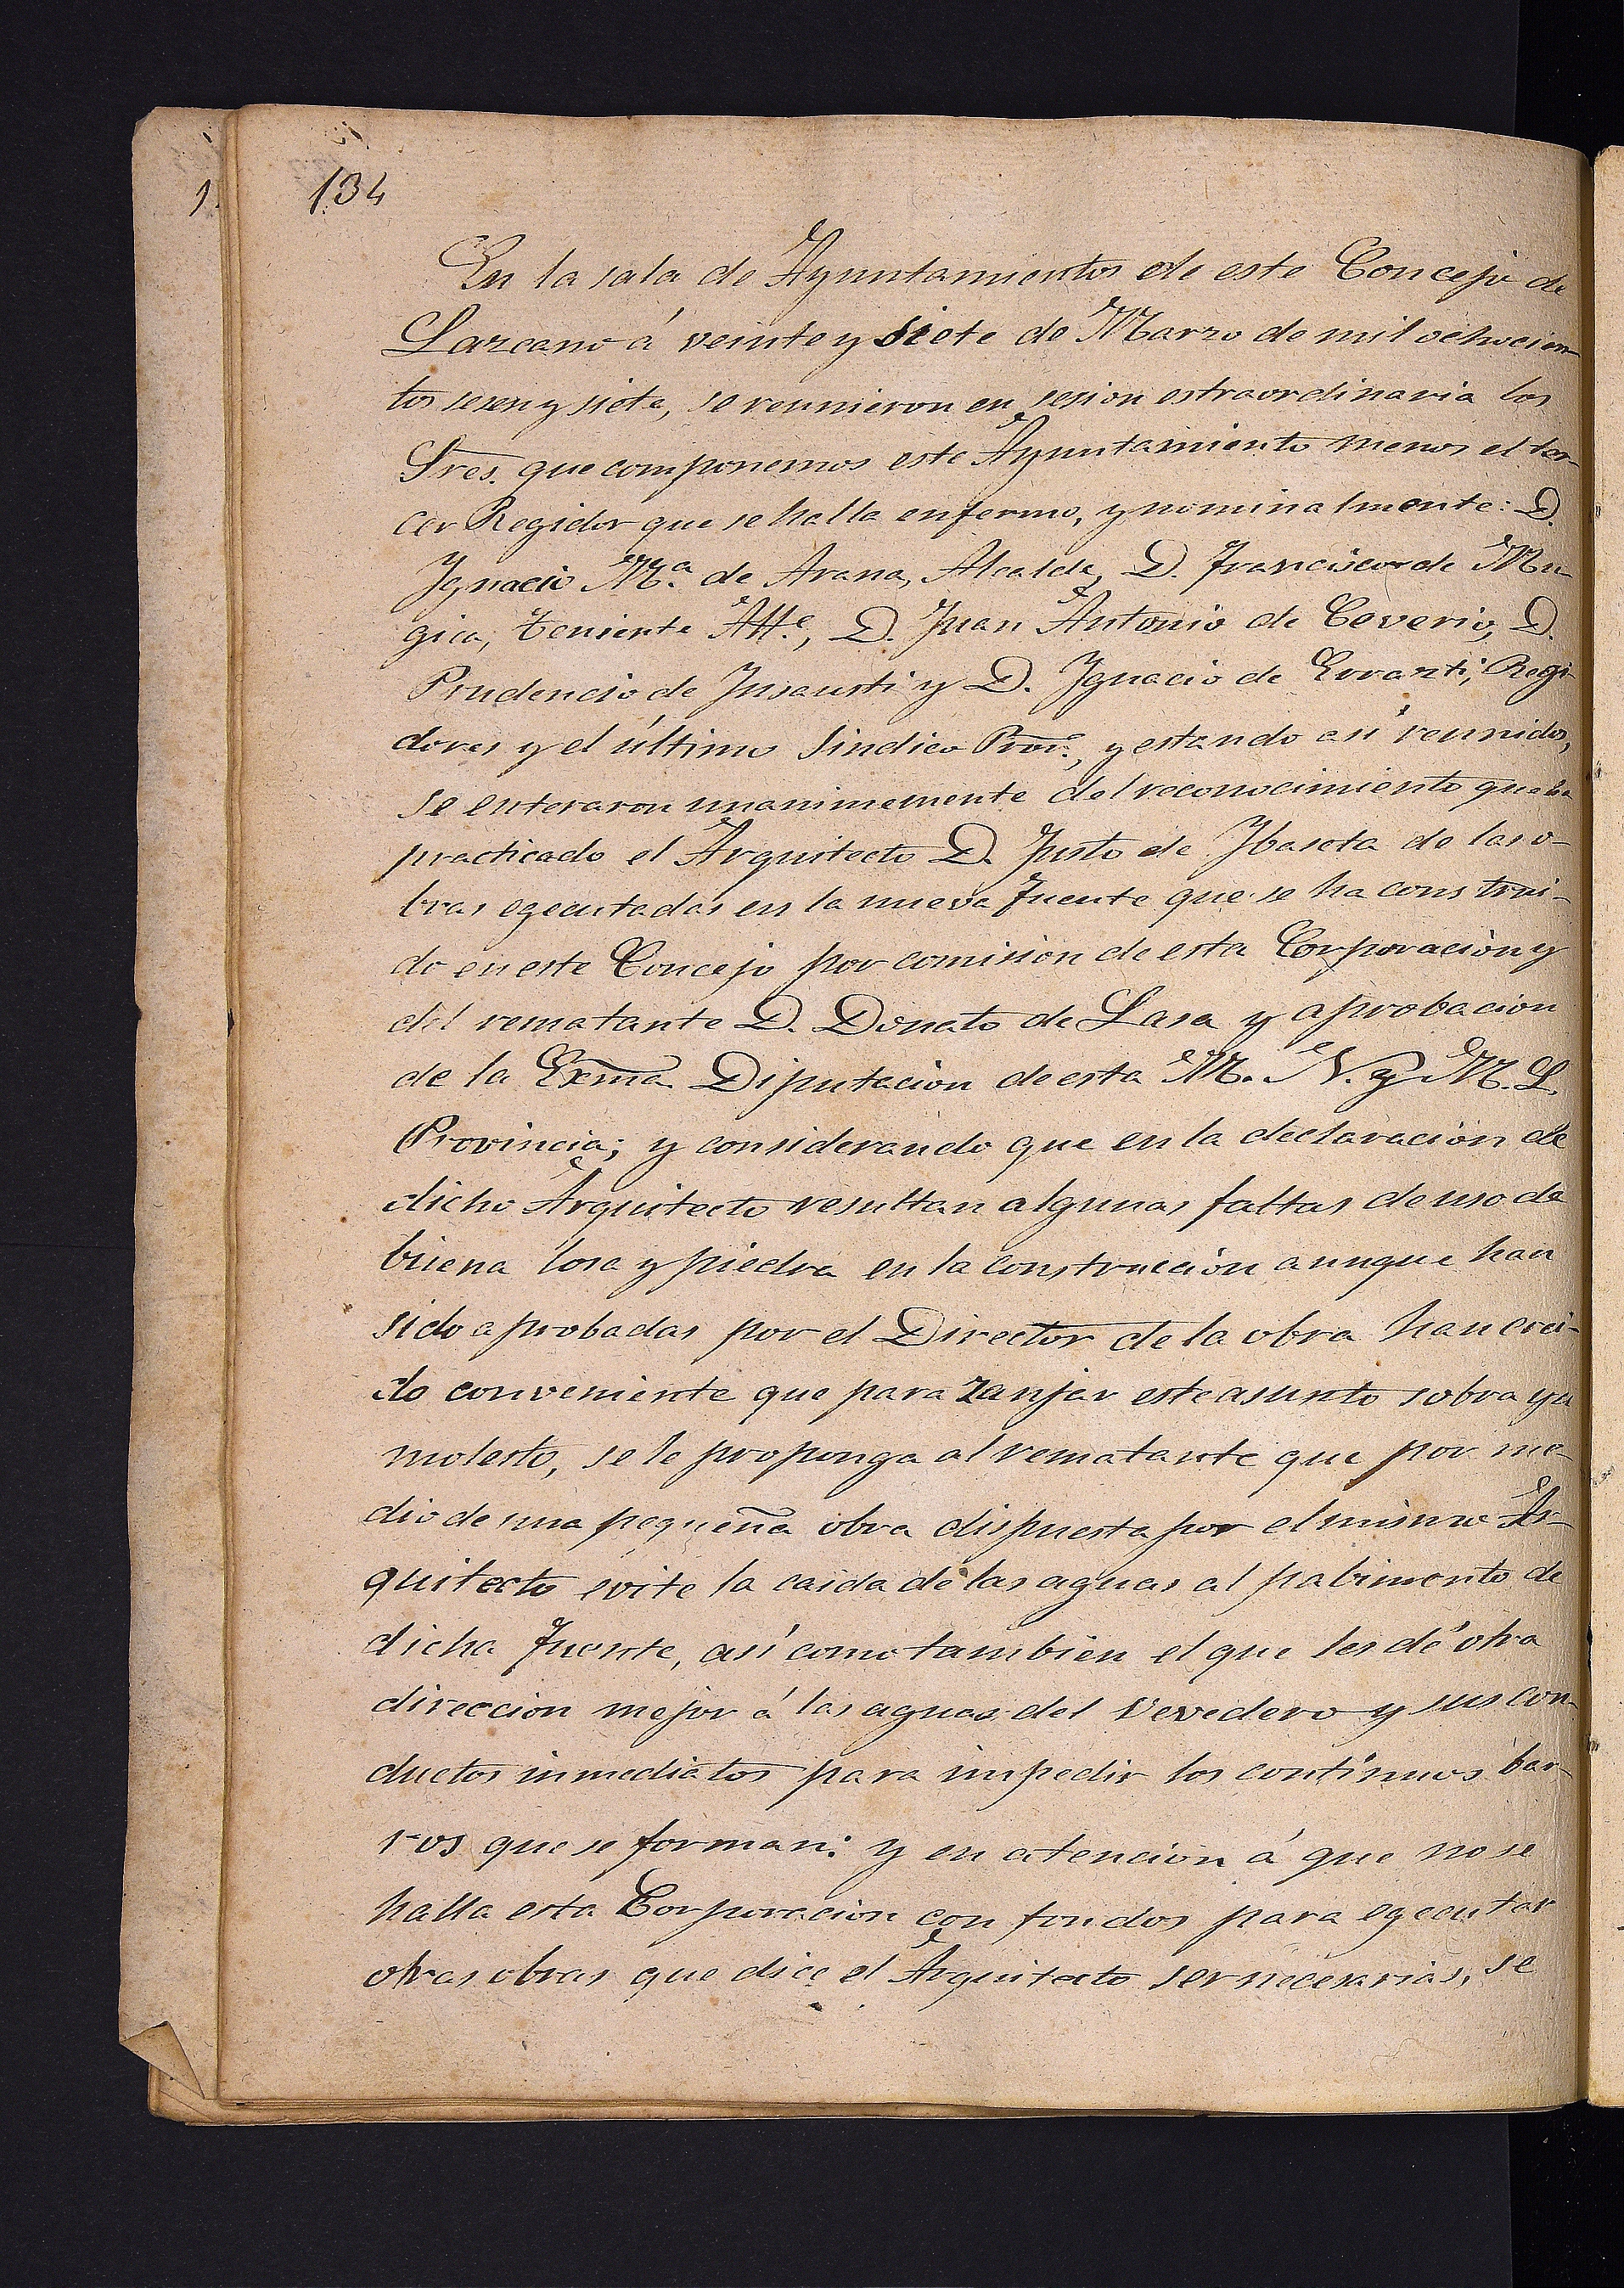 134
En la sala de Ayuntamientos de este Concejo de
Lazcano á veinte y siete de Marzo de mil ochocien-
tos sesen y siete, se reunieron en sesion estraordinaria los
Sres. que componemos este Ayuntamiento menos el ter-
cer Regidor que se halla enfermo, y nominalmente: D.
Ygnacio Mª. de Arana, Alcalde, D. Francisco de Mu-
gica, teniente Alle., D. Juan Antonio de Ceverio, D.
Prudencio de Insausti y D. Ygnacio de Errazti, Regi-
dores y el último Sindico Pror., y estando así reunidos,
se enteraron unanimemente del reconocimiento que ha
practicado el Arquitecto D. Justo de Ybaseta de las o-
bras egecutadas en la nueva Fuente que se ha construi-
do en este Concejo por comision de esta Corporacion y
del rematante D. Donato de Lasa y aprobacion
de la Exma. Diputacion de esta M. N. y M. L.
Provincia; y considerando que en la declaracion de
dicho Arquitecto resultan algunas faltas de uso de
buena losa y piedra en la construccion aunque han
sido aprobadas por el Director de la obra han crei-
do conveniente que para zanjar este asunto sobra ya
molesto, se le proponga al rematante que por me-
dio de una pequeña obra dispuesta por el mismo Ar-
quitecto evite la caida de las aguas al pabimento de
dicha Fuente, así como tambien el que les dé otra
direccion mejor á las aguas del Vevedero y sus con-
ductos inmediatos para impedir los contínuos bar-
ros que se forman: y en atencion á que no se
halla esta Corporacion con fondos para egecutar
otras obras que dice el Arquitecto ser necesarias, se